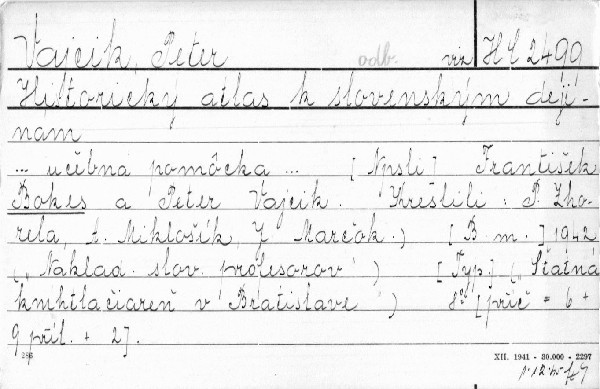 Vajcík, Peter odb. viz HC 2490
Historický atlas k slovenským deji-
nám
... učebná pomôcka ... [Npsli] František
Bokes a Peter Vajcík. Kreslili: P. Zho-
rela, A. Miklošík, J. Marčok.) [B. m.] 1942
(„Naklad. slov. profesorov") [Typ.] („Štátná
knihtlačiareň v Bratislave") 8° [příč = 6 +
9 příl. + 2].
286 XII. 1941 - 30.000 - 2297